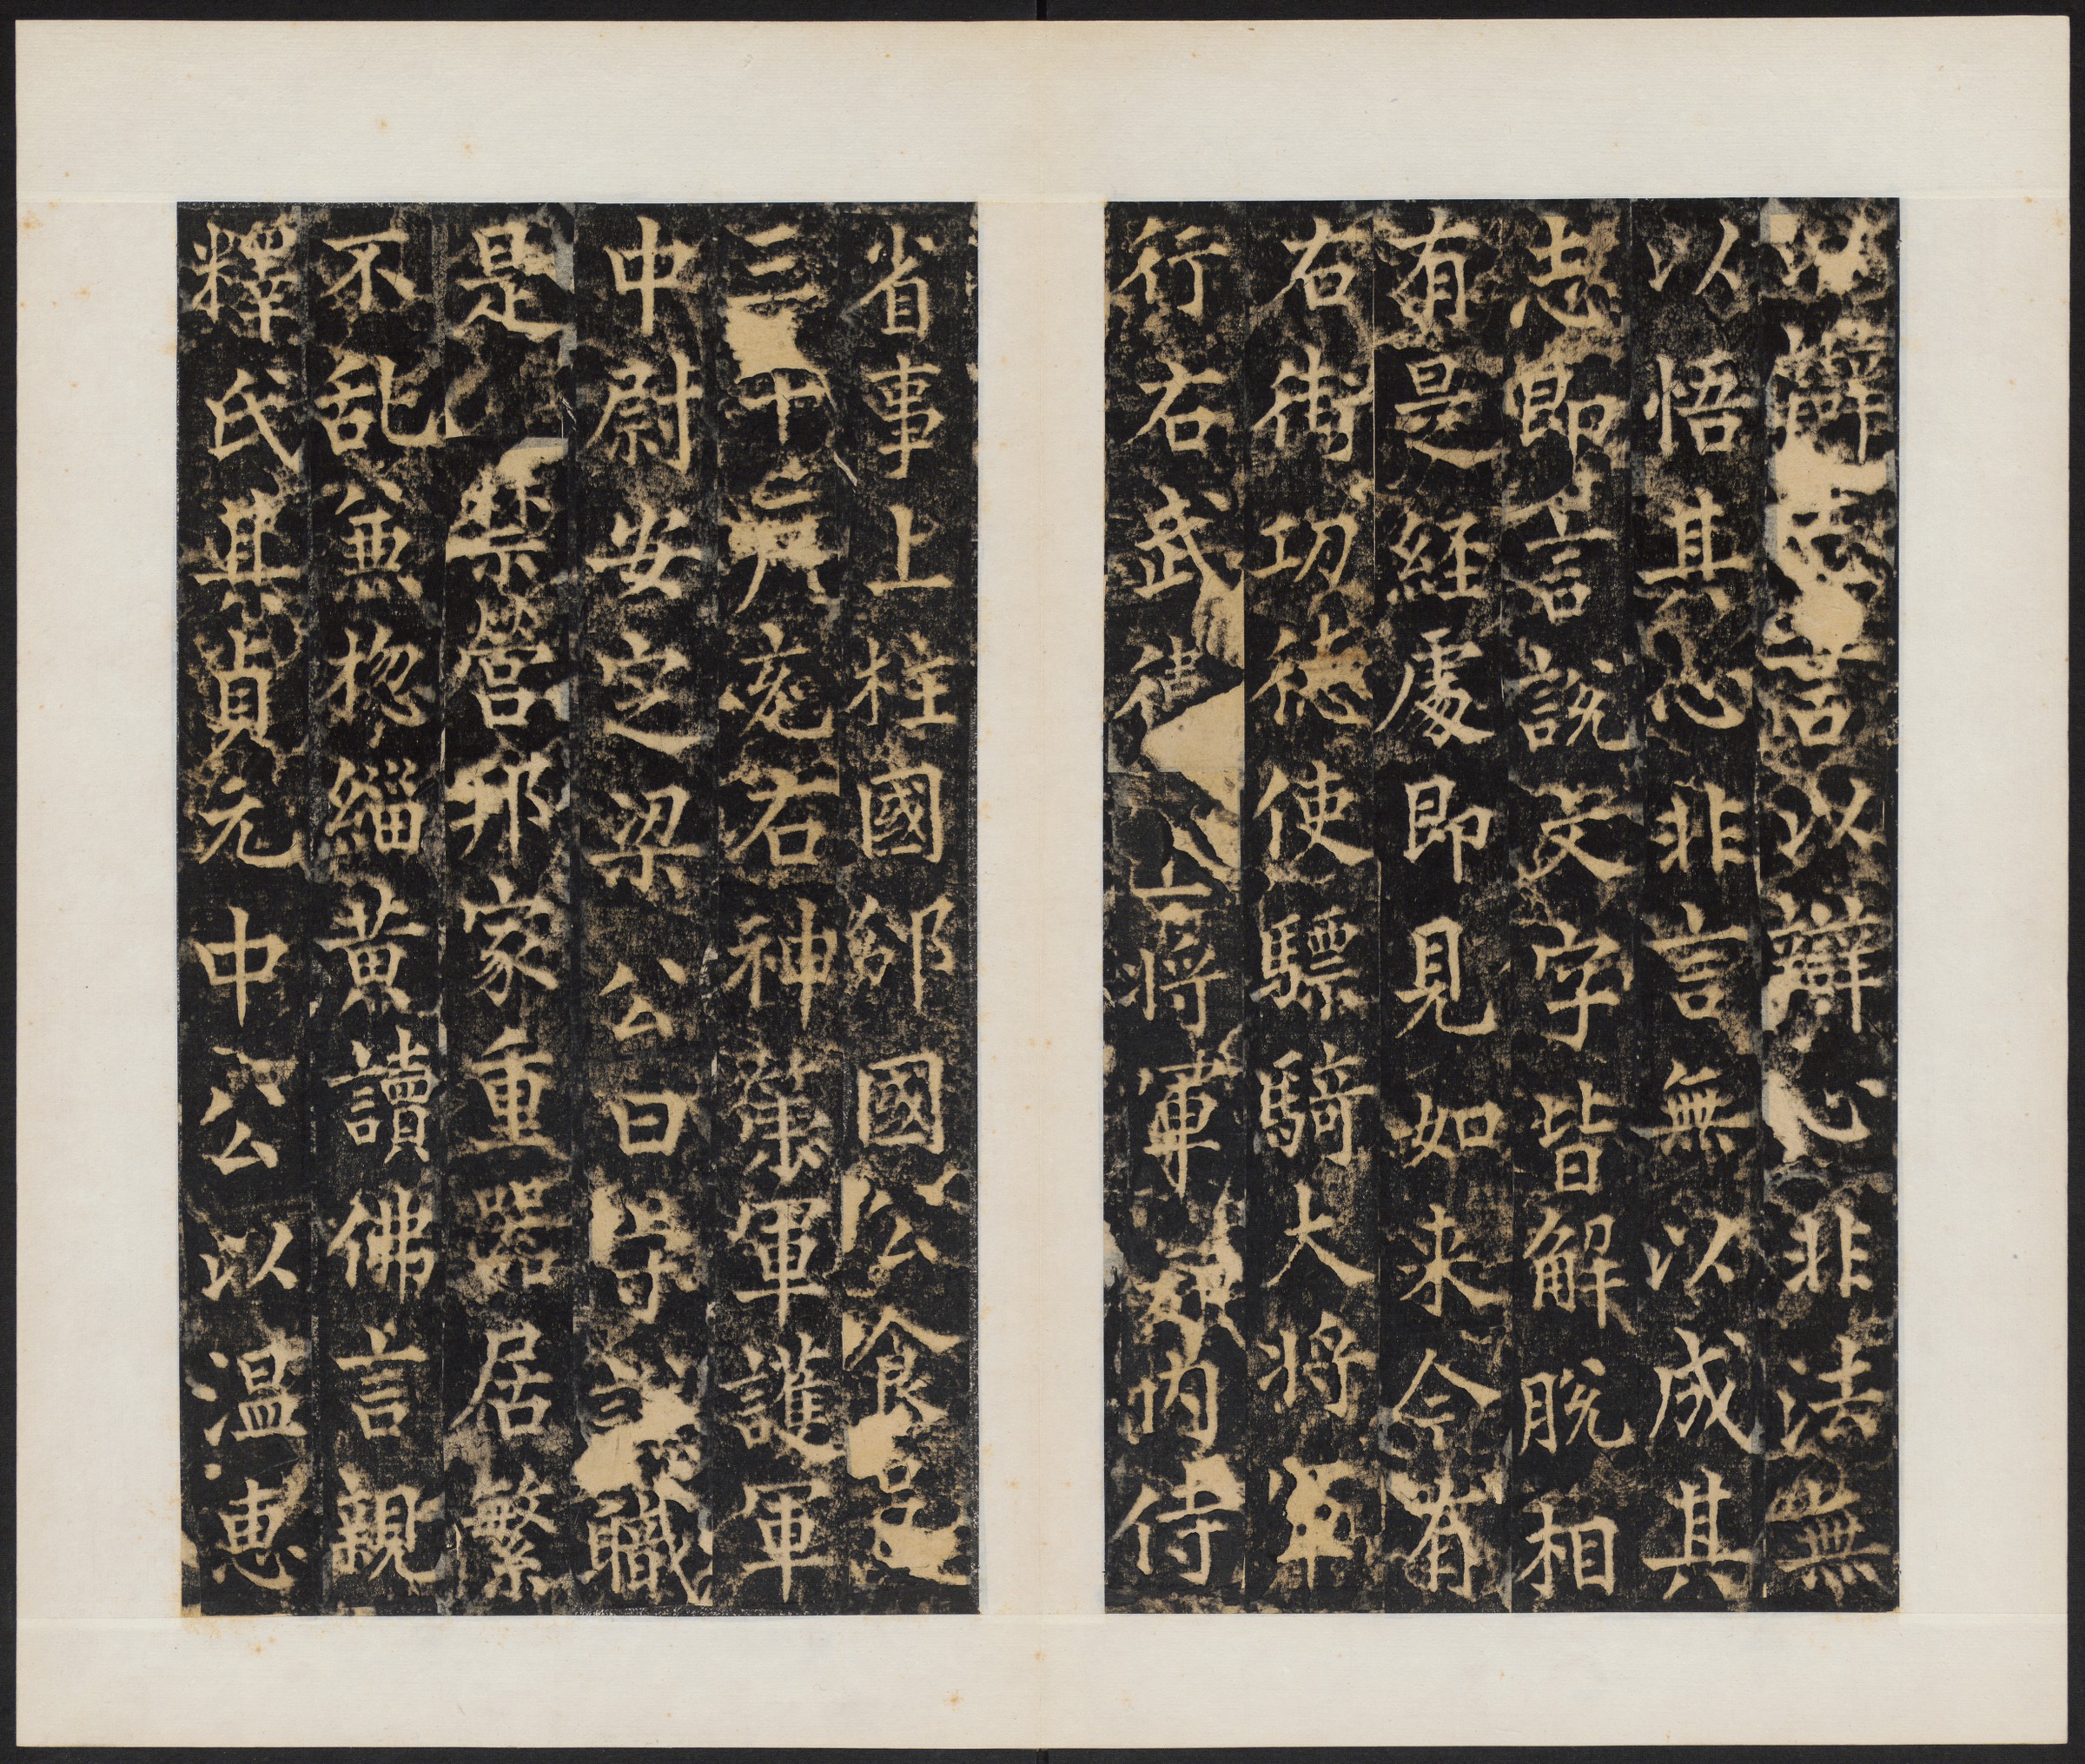 以辯言以辯心非法無
以悟其心非言無以成其
志即言說文字皆解脫相
有是經處即見如来今有
右街功徳使驃騎大将軍
行右武衛上将軍知内侍
省事上柱國邠國公食邑
三千戶充右神策軍護軍
中尉安定梁公曰守謙職
是禁營邦家重器居繁
不乱兼揔緇黃讀佛言親
釋氏其貞元中公以温恵